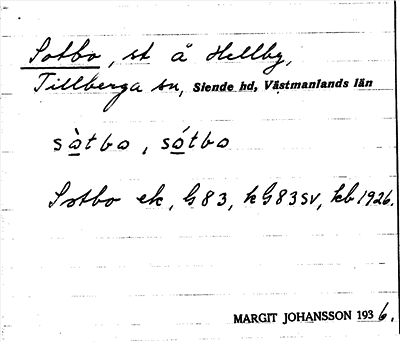 Sotbo, st å Hellby,
Tillberga sn, Siende hd, Västmanlands län
sòtbo, sótbo
Sotbo ek, G83, kG83SV, kb 1926.
MARGIT JOHANSSON 1936.